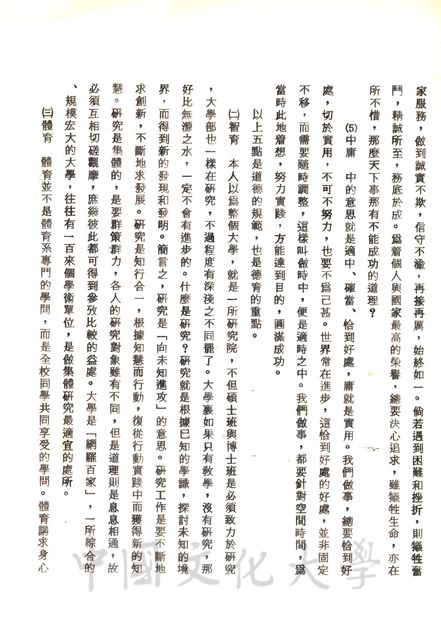 家服務，做到誠實不欺，信守不渝，再接再厲，始終如一。倘若遇到困難和挫折，則犧牲奮
鬥，精誠所至，務底於成。爲着個人與國家最高的榮譽，總要決心追求，雖犧牲生命，亦在
所不惜，那麼天下事那有不能成功的道理？
⑸中庸　中的意思就是適中、確當、恰到好處，庸就是實用。我們做事，總要恰到好
處，切於實用，不可不努力，也要不爲己甚。世界常在進步，這恰到好處的好處，並非固定
不移，而需要隨時調整，這樣叫做時中，便是適時之中。我們做事，都要針對空間時間，爲
當時此地着想，努力實踐，方能達到目的，圓滿成功。
以上五點是道德的規範，也是德育的重點。
㈡智育　本人以爲整個大學，就是一所研究院，不但碩士班與博士班是必須致力於研究
，大學部也一樣在研究，不過程度有深淺之不同罷了。大學裏如果只有敎學，沒有研究，那
好比無源之水，一定不會有進步的。什麼是研究？研究就是根據已知的學識，探討未知的境
界，而得到新的發現和發明。簡言之，研究是「向未知進攻」的意思。研究工作是要不斷地
求創新，不斷地求發展。研究是知行合一，根據知慧而行動，復從行動實踐中而獲得新的知
慧。研究是集體的，是要群策群力，各人的研究對象雖有不同，但是道理則是息息相通，故
必須互相切磋觀摩，庶幾彼此都可得到參攷比較的益處。大學是「網羅百家」，一所綜合的
、規模宏大的大學，往往有一百來個學術單位，是做集體研究最適宜的處所。
㈢體育　體育並不是體育系專門的學問，而是全校同學共同享受的學問。體育講求身心
中國文化大學